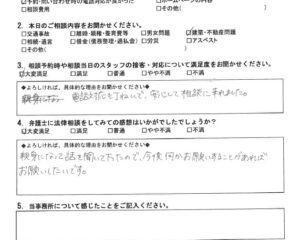 ☑予約・問い合わせ時の電話対応が良かった □ホームページの内容
□相談費用 □その他( )
2．本日のご相談内容をお聞かせください。
□交通事故 □離婚・親権・養育費等 □男女問題 ☑建築・不動産問題
□相続・遺言 □借金(債務整理・過払金) □労災 □アスベスト
□その他( )
3．相談予約時や相談当日のスタッフの接客・対応について満足度をお聞かせください。
☑大変満足 □満足 □普通 □やや不満 □不満
◆よろしければ、具体的な理由をお聞かせください◆
電話対応も丁ねいで、安心して相談に来れました。
4．弁護士に法律相談をしてみての感想はいかがでしたでしょうか？
☑大変満足 □満足 □普通 □やや不満 □不満
◆よろしければ、具体的な理由をお聞かせください◆
親身になって話を聞いて下ったので、今後何かお願いすることがあれば
お願いしたいです。
5．当事務所について感じたことをご記入ください。